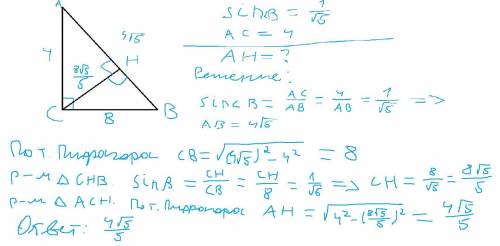 A
sin B = 1/√5
AC = 4
4√5
AH = ?
4
H
8√5/5
Решение:
sin B = AC/AB = 4/AB = 1/√5 =>
C
8
B
AB = 4√5
По т. Пифагора CB = √(4√5)² - 4² = 8
р-м △ CHB. sin B = CH/CB = CH/8 = 1/√5 => CH = 8/√5 = 8√5/5
р-м △ ACH. По т. Пифагора AH = √4² - (8√5/5)² = 4√5/5
Ответ: 4√5/5